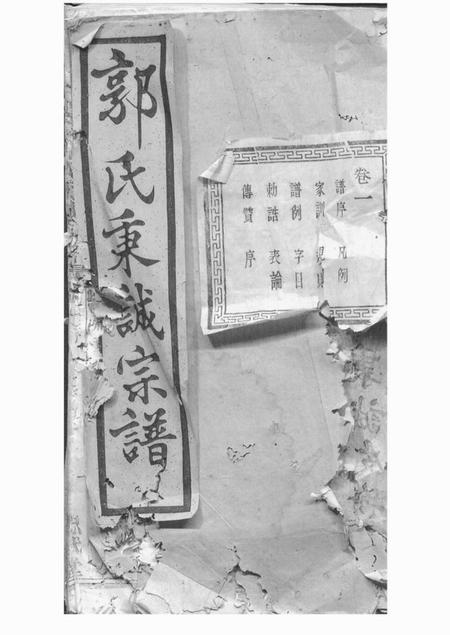 郭氏秉誠宗譜
卷一
譜序 凡例
家訓
譜例 字目
勅誥 表論
傳贊 序